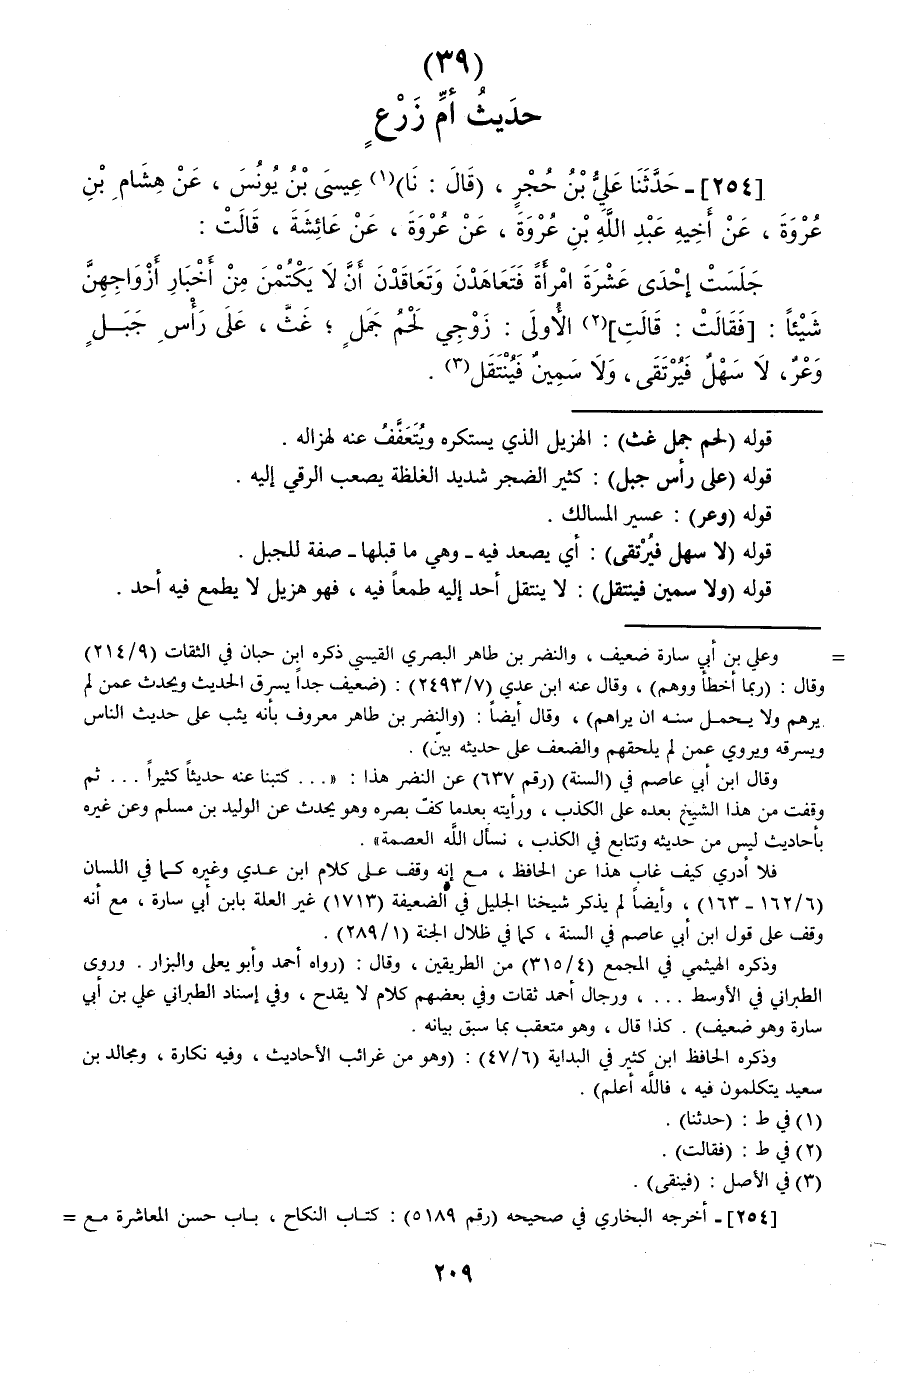 (٣٩)
حدَيثُ أُمِّ زَرْعٍ
[٢٥٤] ـ حَدَّثَنَا عَلِيُّ بْنُ حُجْرٍ ، (قَالَ : نَا)(١) عِيسَى بْنُ يُونُسَ ، عَنْ هِشَامِ بْنِ
عُرْوَةَ ، عَنْ أَخِيهِ عَبْدِ اللَّهِ بْنِ عُرْوَةَ ، عَنْ عُرْوَةَ ، عَنْ عَائِشَةَ ، قَالَتْ :
جَلَسَتْ إِحْدَى عَشْرَةَ امْرأَةً فَتَعَاهَدْنَ وَتَعَاقَدْنَ أَنَّ لَا يَكْتُمْنَ مِنْ أَخْبَارِ أَزْوَاجِهِنَّ
شَيْئاً : [فَقَالَتْ : قَالَتِ](٢) الأُولَى : زَوْجِي لَحْمُ جَمَلٍ ؛ غَثَّ ، عَلَى رَأْسِ جَبَلٍ
وَعْرٌ، لَا سَهْلٌ فَيُرْتَقَى، وَلَا سَمِينٌ فَيُنْتَقَل(٣) .
قوله (لحم جمل غث) : الهزيل الذي يستكره ويُتَعَفَّفُ عنه لهزاله .
قوله (على رأس جبل) : كثير الضجر شديد الغلظة يصعب الرقي إليه .
قوله (وعر) : عسير المسالك .
قوله (لا سهل فيُرْتقى) : أي يصعد فيه ـ وهي ما قبلها ـ صفة للجبل .
قوله (ولا سمين فينتقل) : لا ينتقل أحد إليه طمعاً فيه ، فهو هزيل لا يطمع فيه أحد .
= وعلي بن أبي سارة ضعيف ، والنضر بن طاهر البصري القيسي ذكره ابن حبان في الثقات (٢١٤/٩)
وقال : (ربما أخطأ ووهم) ، وقال عنه ابن عدي (٢٤٩٣/٧) : (ضعيف جداً يسرق الحديث ويحدث عمن لم
يرهم ولا يحمل سنه ان يراهم) ، وقال أيضاً : (والنضر بن طاهر معروف بأنه يثب على حديث الناس
ويسرقه ويروي عمن لم يلحقهم والضعف على حديثه بيّن) .
وقال ابن أبي عاصم في (السنة) (رقم ٦٣٧) عن النضر هذا : «... كتبنا عنه حديثاً كثيراً ... ثم
وقفت من هذا الشيخ بعده على الكذب ، ورأيته بعدما كفّ بصره وهو يحدث عن الوليد بن مسلم وعن غيره
بأحاديث ليس من حديثه وتتابع في الكذب ، نسأل اللَّه العصمة» .
فلا أدري كيف غاب هذا عن الحافظ ، مع إنه وقف على كلام ابن عدي وغيره كما في اللسان
(١٦٢/٦ ـ ١٦٣) ، وأيضاً لم يذكر شيخنا الجليل في الضعيفة (١٧١٣) غير العلة بابن أبي سارة ، مع أنه
وقف على قول ابن أبي عاصم في السنة ، كما في ظلال الجنة (٢٨٩/١) .
وذكره الهيثمي في المجمع (٣١٥/٤) من الطريقين ، وقال : (رواه أحمد وأبو يعلى والبزار . وروى
الطبراني في الأوسط ... ، ورجال أحمد ثقات وفي بعضهم كلام لا يقدح ، وفي إسناد الطبراني علي بن أبي
سارة وهو ضعيف) . كذا قال ، وهو متعقب بما سبق بيانه .
وذكره الحافظ ابن كثير في البداية (٤٧/٦) : (وهو من غرائب الأحاديث ، وفيه نكارة ، ومجالد بن
سعيد يتكلمون فيه ، فاللَّه أعلم) .
(١) في ط : (حدثنا) .
(٢) في ط : (فقالت) .
(٣) في الأصل : (فينقى) .
[٢٥٤] ـ أخرجه البخاري في صحيحه (رقم ٥١٨٩) : كتاب النكاح ، باب حسن المعاشرة مع =
٢٠٩